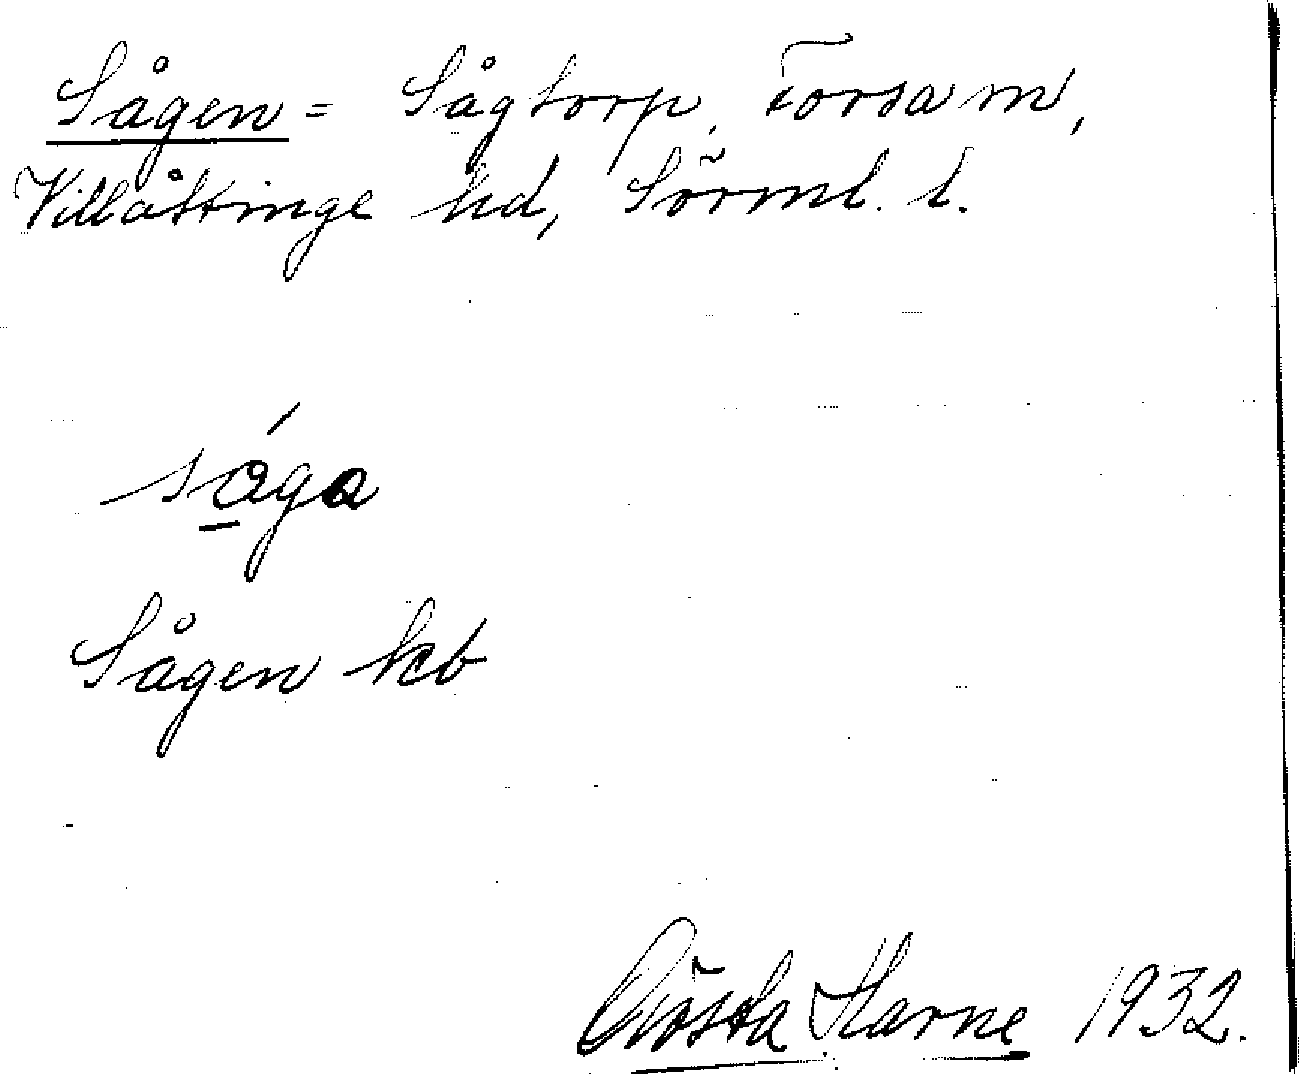 Sågen = Sågtorp, Forsa sn,
Villåttinge hd, Sörml. l.
sága
Sågen kb
Gösta Harne 1932.